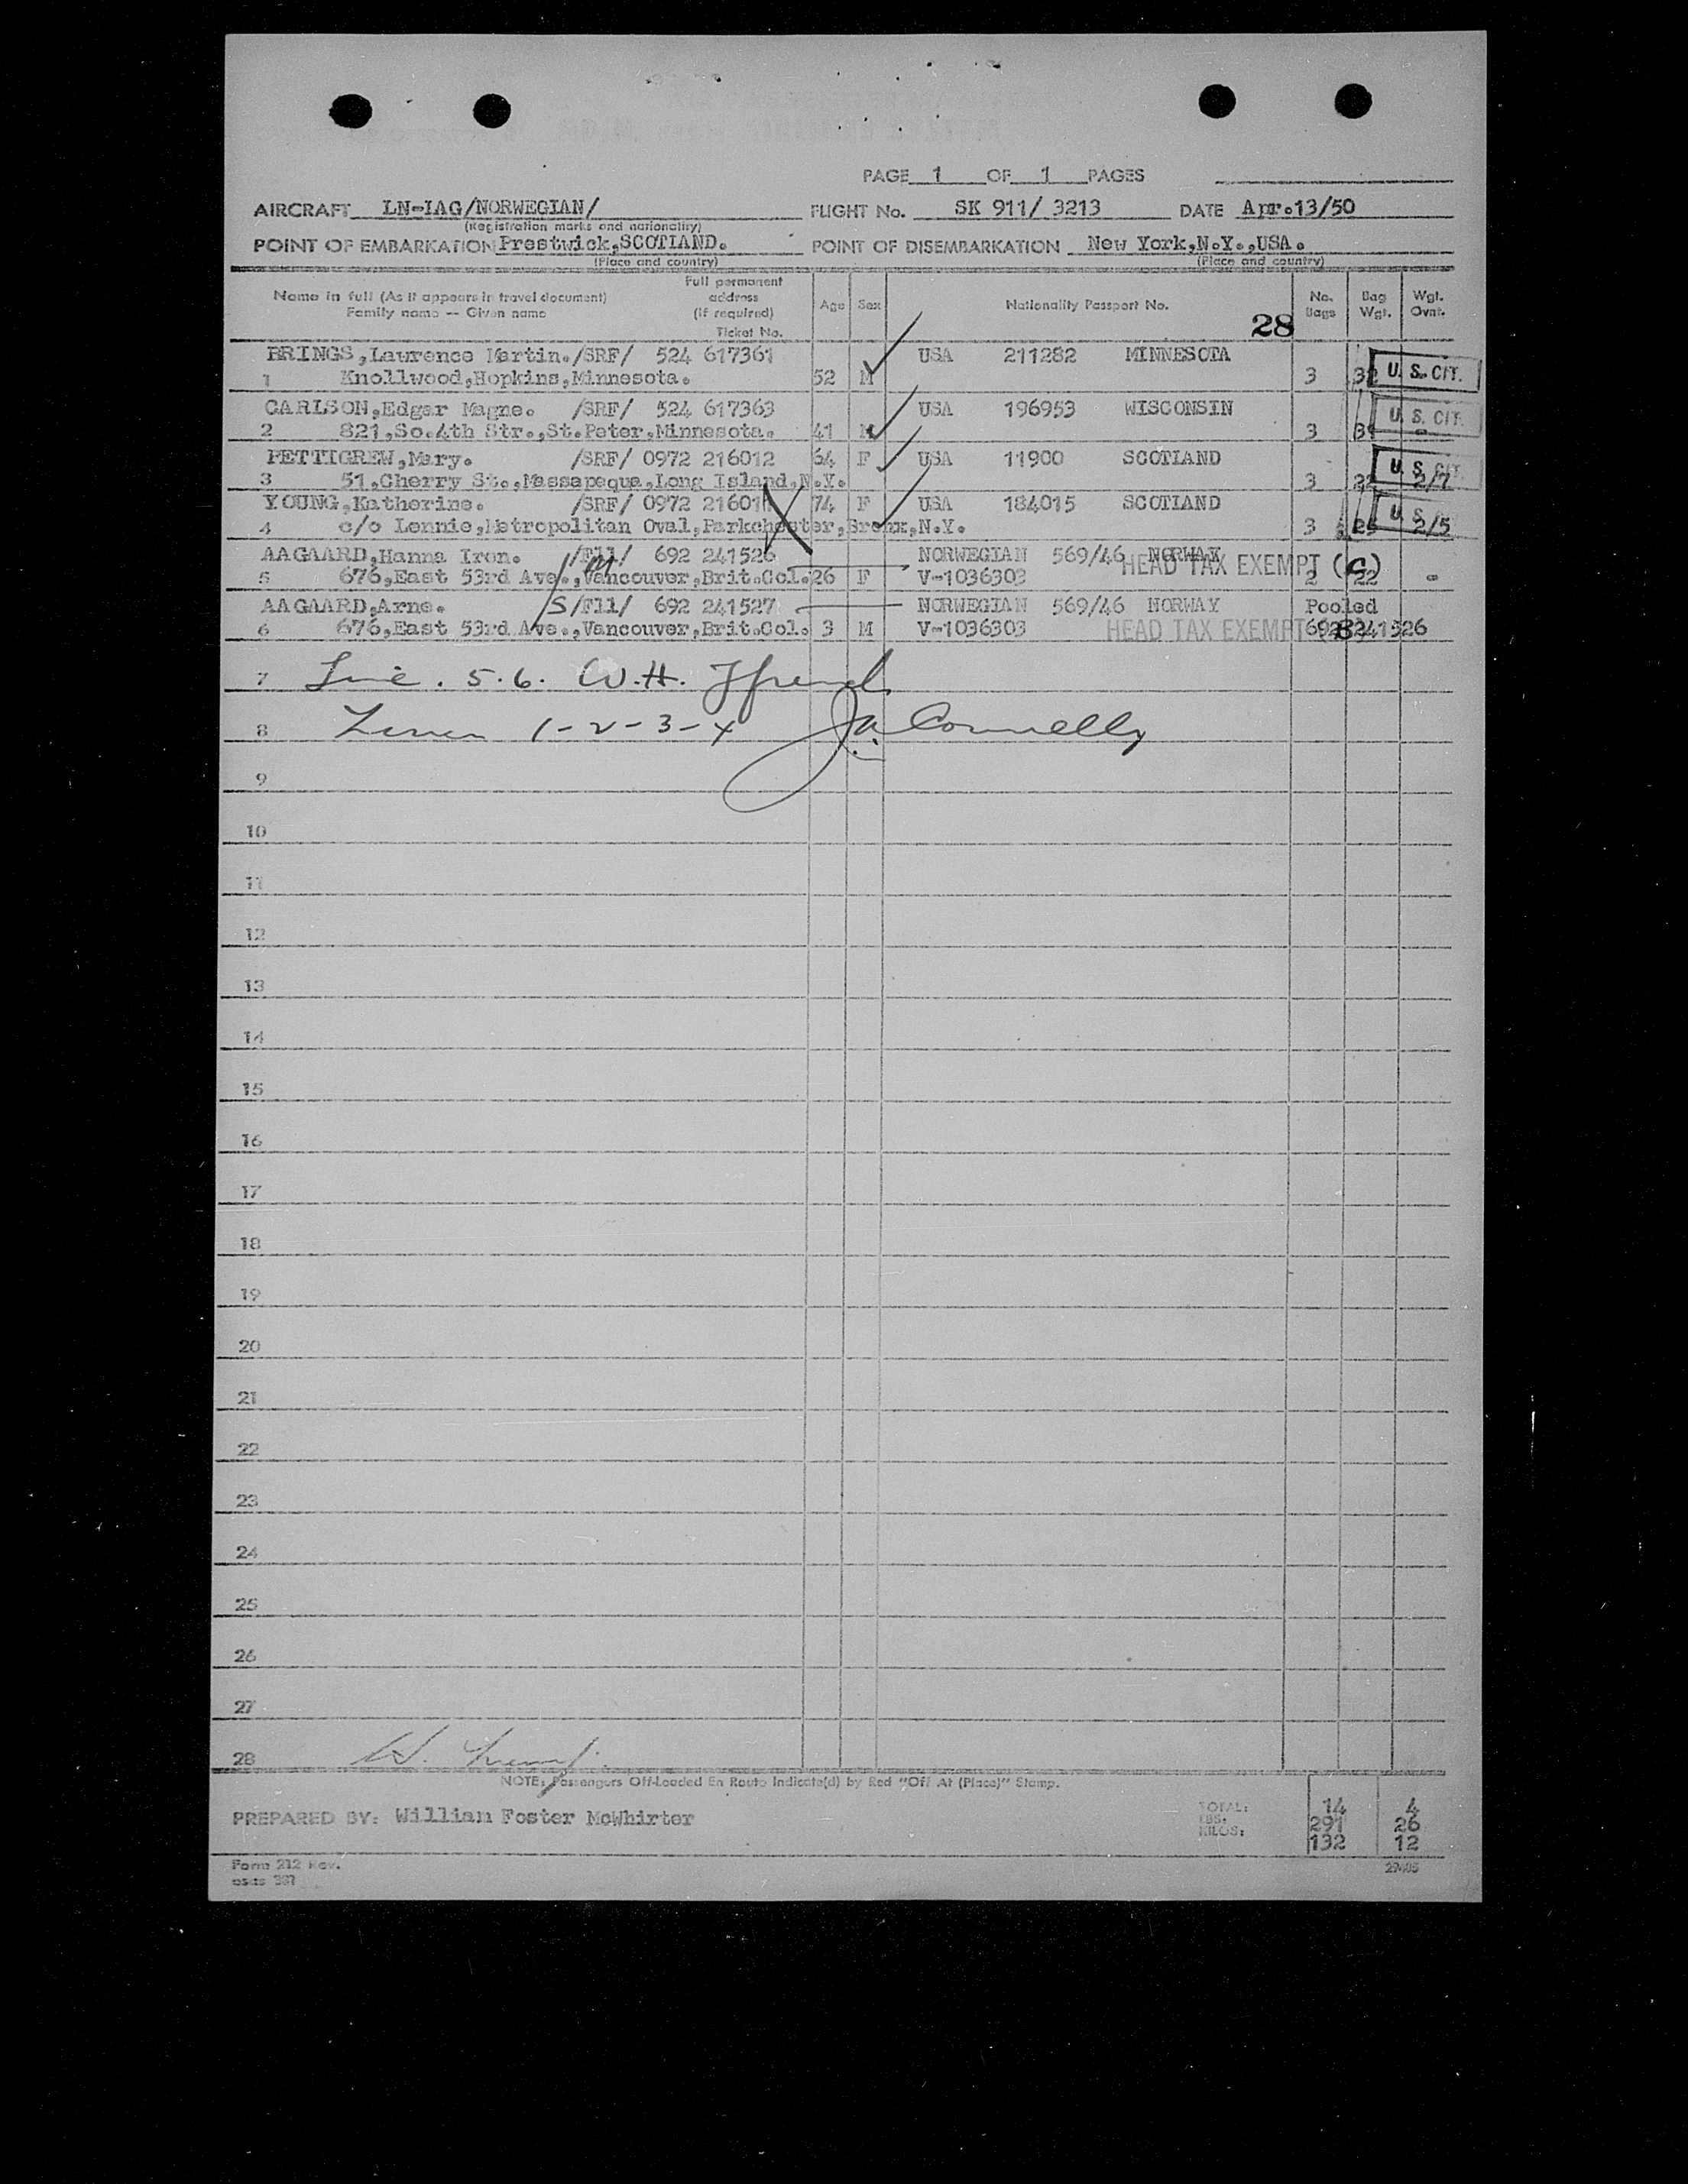 PAGE 1 OF 1 PAGES
AIRCRAFT LN-IAG/NORWEGIAN/ FLIGHT No. SK 911/ 3213 DATE Apr.13/50
(Registration marks and nationality)
POINT OF EMBARKATION Prestwick,SCOTLAND. POINT OF DISEMBARKATION New York,N.Y.,USA.
(Place and country) (Place and country)
Name in full (As it appears in travel document) Full permanent address (if required) Age Sex Nationality Passport No. No. Bags Bag Wgt. Wgt. Ovnt.
Family name -- Given name Ticket No. 28
BRINGS,Lawrence Martin./SRF/ 524 617361 USA 211282 MINNESOTA
1 Knollwood,Hopkins,Minnesota. 52 M 3 U. S. CIT.
CARLSON,Edgar Magne. /SRF/ 524 617363 USA 196953 WISCONSIN
2 821,So.4th Str.,St.Peter,Minnesota. 41 M 3 U. S. CIT.
PETTIGREW,Mary. /SRF/ 0972 216012 64 F USA 11900 SCOTLAND
3 51,Cherry St.,Massapequa,Long Island,N.Y. 3 2/7 U. S. CIT.
YOUNG,Katherine. /SRF/ 0972 74 F USA 184015 SCOTLAND
4 c/o Lennie,Metropolitan Oval,Parkchester,Bronx,N.Y. 3 25 2/5 U. S.
AAGAARD,Hanna Iren. /F11/ 692 241526 NORWEGIAN 569/46 NORWAY
5 676,East 53rd Ave.,Vancouver,Brit.Col. 26 F V-1036303 HEAD TAX EXEMPT 2 22 -
AAGAARD,Arne. S/F11/ 692 241527 NORWEGIAN 569/46 NORWAY Pooled
6 676,East 53rd Ave.,Vancouver,Brit.Col. 3 M V-1036303 HEAD TAX EXEMPT 692 241526
7 Line. 5.6. W.H.
8 Lines 1-2-3-4 J.A. Connelly
9
10
11
12
13
14
15
16
17
18
19
20
21
22
23
24
25
26
27
28
NOTE: Passengers Off-Loaded En Route Indicate(d) by Red "Off At (Place)" Stamp.
PREPARED BY: Willian Foster McWhirter
TOTAL: 14 4
LBS: 291 26
KILOS: 132 12
Form 212 Rev.